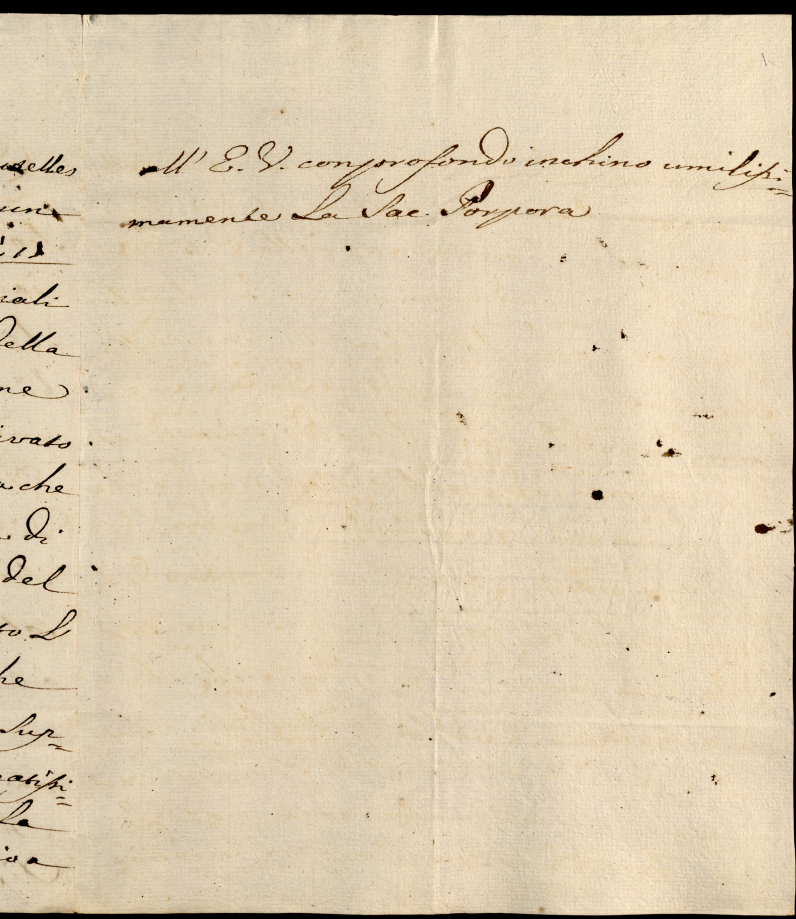 uselles
un
iali
della
ne
ivato
a che
di
del
to L
he
Sup=
atissi=
La
io a
all' E. V. con profondo inchino umilissi=
mamente La Sac. Porpora